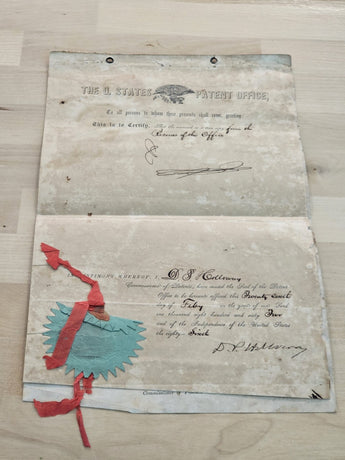 THE U. STATES PATENT OFFICE,
To all persons to whom these presents shall come, greeting
This is to Certify, That the from the
Records of this Office
IN TESTIMONY WHEREOF I, D P Holloway
Commissioner of Patents, have caused the Seal of the Patent
Office to be hereunto affixed this Twenty
day of Feby in the year of our Lord
one thousand eight hundred and sixty Two
and of the Independence of the United States
the eighty- Sixth
D. P. Holloway
Commissioner of